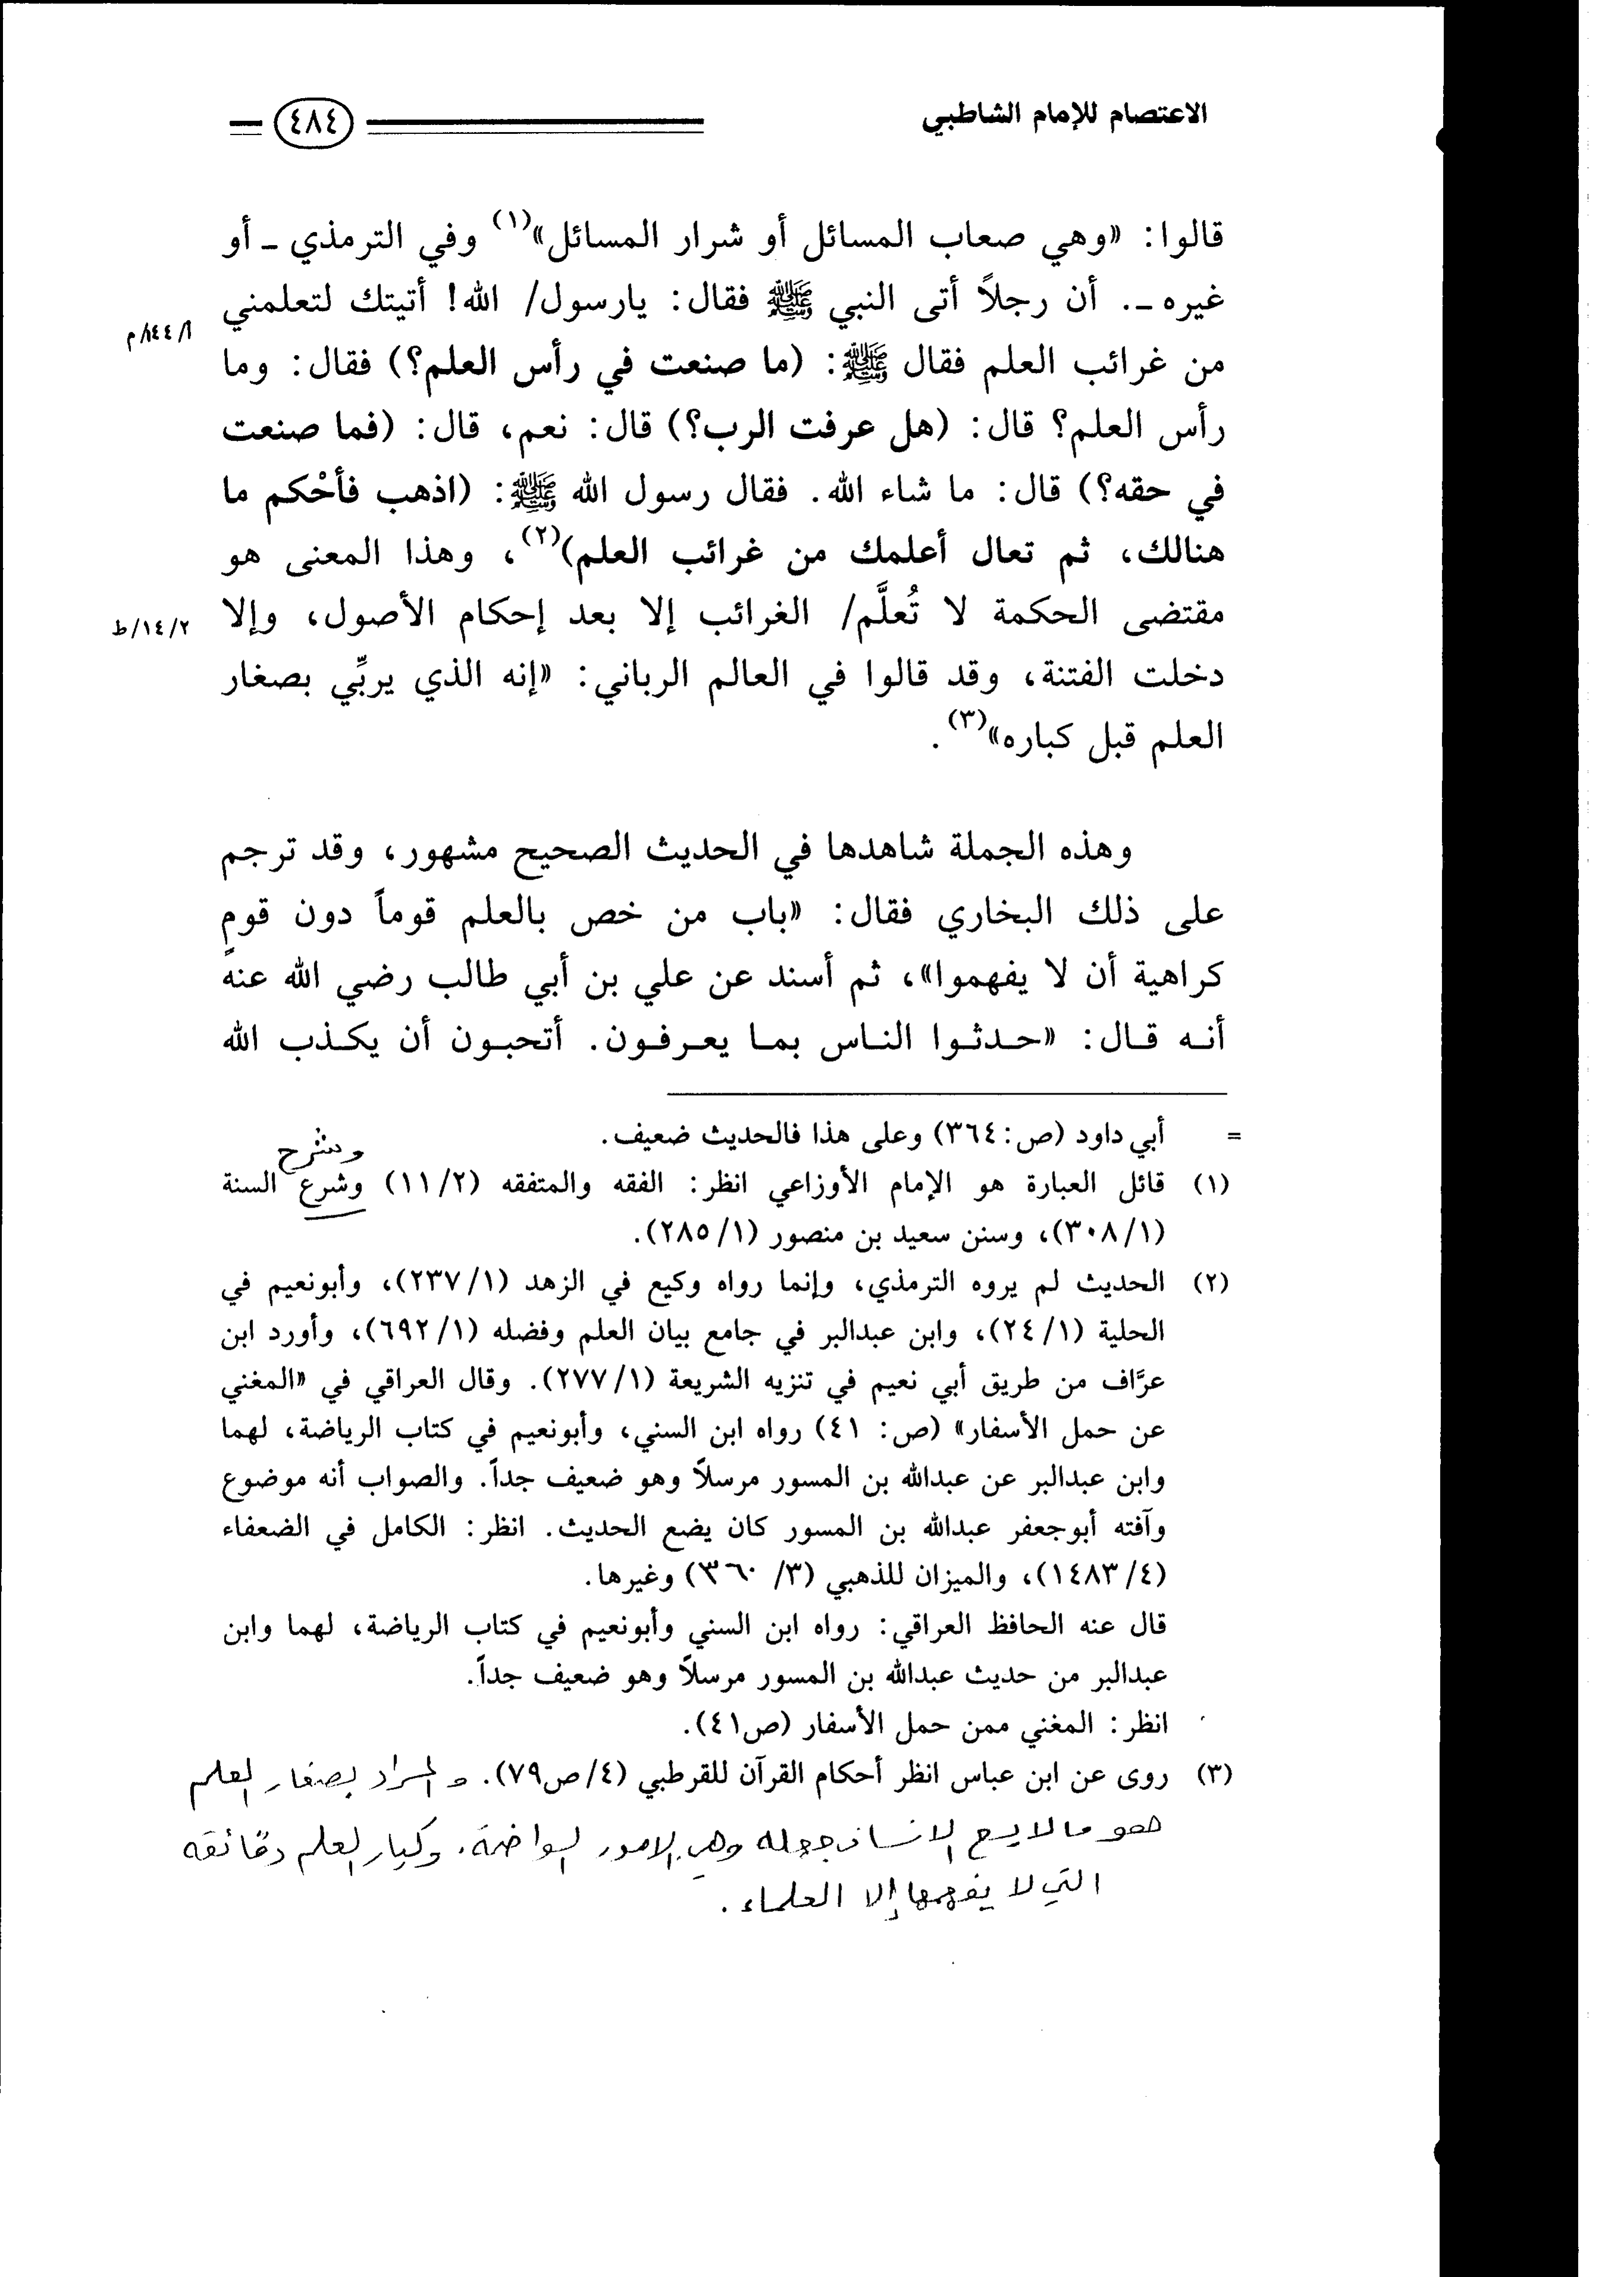 الاعتصام للإمام الشاطبي
٤٨٤
قالوا: «وهي صعاب المسائل أو شرار المسائل»(١) وفي الترمذي ـ أو
غيره ـ. أن رجلاً أتى النبي ﷺ فقال: يارسول/ الله! أتيتك لتعلمني
أ/١٤٤/م
من غرائب العلم فقال ﷺ: (ما صنعت في رأس العلم؟) فقال: وما
رأس العلم؟ قال: (هل عرفت الرب؟) قال: نعم، قال: (فما صنعت
في حقه؟) قال: ما شاء الله. فقال رسول الله ﷺ: (اذهب فأحْكم ما
هنالك، ثم تعال أعلمك من غرائب العلم)(٢)، وهذا المعنى هو
مقتضى الحكمة لا تُعلَّم/ الغرائب إلا بعد إحكام الأصول، وإلا
١٤/٢/ط
دخلت الفتنة، وقد قالوا في العالم الرباني: «إنه الذي يربِّي بصغار
العلم قبل كباره»(٣).
وهذه الجملة شاهدها في الحديث الصحيح مشهور، وقد ترجم
على ذلك البخاري فقال: «باب من خص بالعلم قوماً دون قومٍ
كراهية أن لا يفهموا»، ثم أسند عن علي بن أبي طالب رضي الله عنه
أنه قال: «حدثوا الناس بما يعرفون. أتحبون أن يكذب الله
= أبي داود (ص: ٣٦٤) وعلى هذا فالحديث ضعيف.
وشرح
(١) قائل العبارة هو الإمام الأوزاعي انظر: الفقه والمتفقه (١١/٢) وشرع السنة
(٣٠٨/١)، وسنن سعيد بن منصور (٢٨٥/١).
(٢) الحديث لم يروه الترمذي، وإنما رواه وكيع في الزهد (٢٣٧/١)، وأبونعيم في
الحلية (٢٤/١)، وابن عبدالبر في جامع بيان العلم وفضله (٦٩٢/١)، وأورد ابن
عرَّاف من طريق أبي نعيم في تنزيه الشريعة (٢٧٧/١). وقال العراقي في «المغني
عن حمل الأسفار» (ص: ٤١) رواه ابن السني، وأبونعيم في كتاب الرياضة، لهما
وابن عبدالبر عن عبدالله بن المسور مرسلاً وهو ضعيف جداً. والصواب أنه موضوع
وآفته أبوجعفر عبدالله بن المسور كان يضع الحديث. انظر: الكامل في الضعفاء
(١٤٨٣/٤)، والميزان للذهبي (٣/ ٣٦٠) وغيرها.
قال عنه الحافظ العراقي: رواه ابن السني وأبونعيم في كتاب الرياضة، لهما وابن
عبدالبر من حديث عبدالله بن المسور مرسلاً وهو ضعيف جداً.
انظر: المغني ممن حمل الأسفار (ص٤١).
(٣) روى عن ابن عباس انظر أحكام القرآن للقرطبي (٤/ص٧٩). والمراد بصغار العلم
هو ما لا يسع الانسان جهله وهي الامور الواضحة. وكبار العلم دقائقه
التي لا يفهمها إلا العلماء.